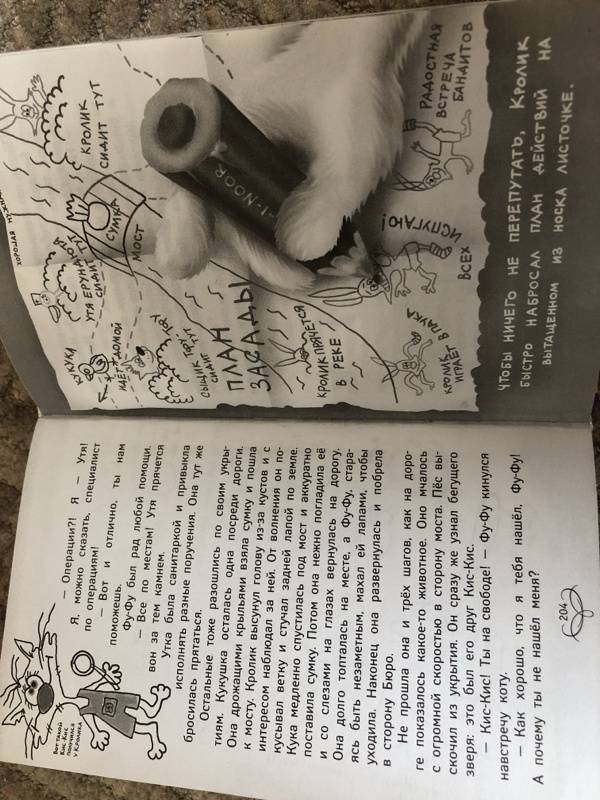 ВОТ ТАКОЙ
КИС-КИС
ПОЛУЧИЛСЯ
У КРОЛИКА
— Операции?! Я — Утя!
Я, можно сказать, специалист
по операциям!
— Вот и отлично, ты нам
поможешь.
Фу-Фу был рад любой помощи.
— Все по местам! Утя прячется
вон за тем камнем.
Утка была санитаркой и привыкла
исполнять разные поручения. Она тут же
бросилась прятаться.
Остальные тоже разошлись по своим укры-
тиям. Кукушка осталась одна посреди дороги.
Она дрожащими крыльями взяла сумку и пошла
к мосту. Кролик высунул голову из-за кустов и с
интересом наблюдал за ней. От волнения он по-
кусывал ветку и стучал задней лапой по земле.
Кука медленно спустилась под мост и аккуратно
поставила сумку. Потом она нежно погладила её
и со слезами на глазах вернулась на дорогу.
Она долго топталась на месте, а Фу-Фу, стара-
ясь быть незаметным, махал ей лапами, чтобы
уходила. Наконец она развернулась и побрела
в сторону Бюро.
Не прошла она и трёх шагов, как на доро-
ге показалось какое-то животное. Оно мчалось
с огромной скоростью в сторону моста. Пёс вы-
скочил из укрытия. Он сразу же узнал бегущего
зверя: это был его друг Кис-Кис.
— Кис-Кис! Ты на свободе! — Фу-Фу кинулся
навстречу коту.
— Как хорошо, что я тебя нашёл, Фу-Фу!
А почему ты не нашёл меня?
204
ХОРОШАЯ
КРОЛИК
СИДИТ ТУТ
УТЯ ЕРУНДУТЯ
СИДИТ ТУТ
СУМКА
МОСТ
КУКУКА
ИДЁТ ДОМОЙ
СЫЩИК
СИДИТ ТУТ
ПЛАН
ЗАСАДЫ
КРОЛИК ПРЯЧЕТСЯ
В РЕКЕ
КРОЛИК
ИГРАЕТ В ПАУКА
ВСЕХ
ИСПУГАЮ!
РАДОСТНАЯ
ВСТРЕЧА
БАНДИТОВ
I-NOOR
ЧТОБЫ НИЧЕГО НЕ ПЕРЕПУТАТЬ, КРОЛИК
БЫСТРО НАБРОСАЛ ПЛАН ДЕЙСТВИЙ НА
ВЫТАЩЕННОМ ИЗ НОСКА ЛИСТОЧКЕ.